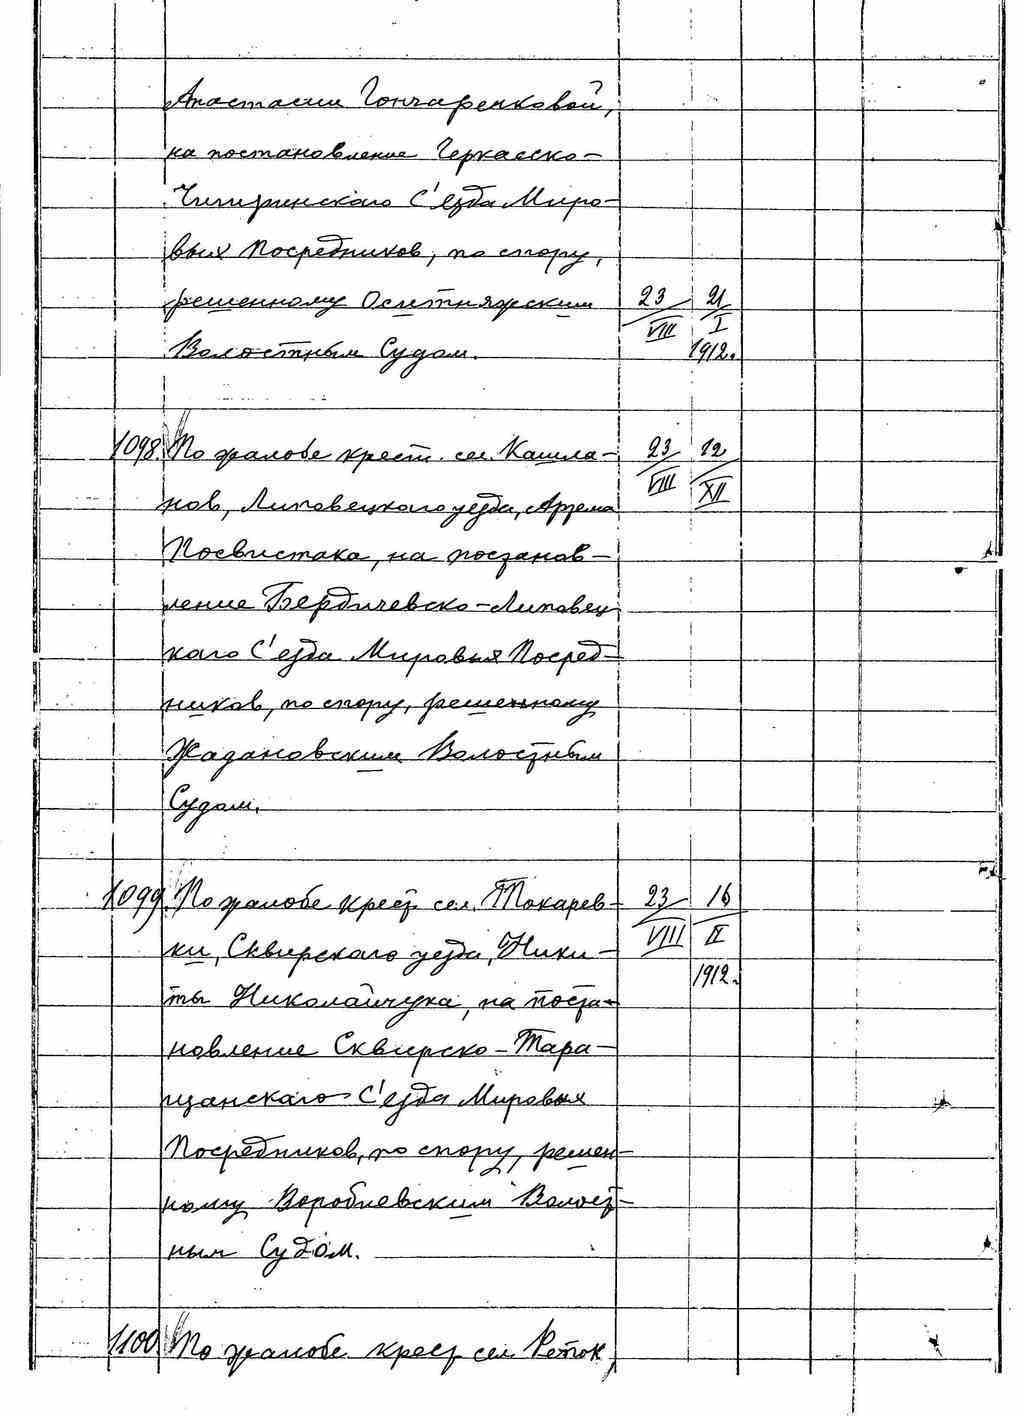 Анастасии Гончаренковой,
на постановление Черкасско-
Чигиринскаго С'езда Миро-
вых Посредников, по спору,
решенному Оситняжским 23/VIII 21/I
Волостным Судом. 1912.
1098. По жалобе крест. сел. Кашла- 23/VIII 12/XII
нов, Липовецкаго уезда, Артема
Посвистака, на постанов-
ление Бердичевско-Липовец
каго С'езда Мировых Посред-
ников, по спору, решенному
Жадановским Волостным
Судом.
1099. По жалобе крест. сел. Токарев- 23/VIII 16/II
ки, Сквирскаго уезда, Ники- 1912.
ты Николайчука, на поста-
новление Сквирско-Тара-
щанскаго С'езда Мировых
Посредников, по спору, решен-
ному Воробиевским Волост-
ным Судом.
1100. По жалобе крест. сел. Реток,